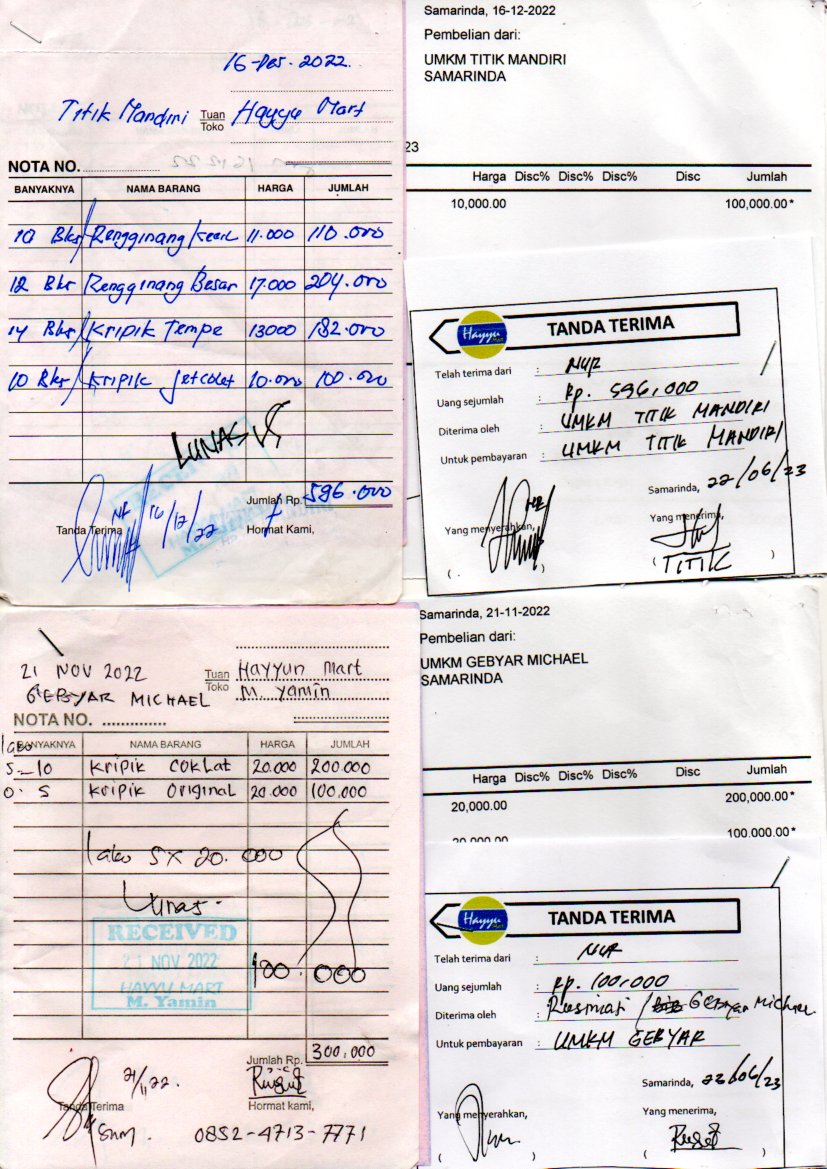 16-Des-2022
Titik Mandiri Tuan Toko Hayyu Mart
NOTA NO.
BANYAKNYA NAMA BARANG HARGA JUMLAH
10 Bks Rengginang kecil 11.000 110.000
12 Bks Rengginang Besar 17.000 204.000
14 Bks Kripik Tempe 13000 182.000
10 Bks Kripik 10.000 100.000
LUNAS
Jumlah Rp. 596.000
Tanda Terima 16/12/22 Hormat Kami,
Samarinda, 16-12-2022
Pembelian dari:
UMKM TITIK MANDIRI
SAMARINDA
23
Harga Disc% Disc% Disc% Disc Jumlah
10,000.00 100,000.00*
Hayyu Mart
TANDA TERIMA
Telah terima dari : NUR
Uang sejumlah : Rp. 596,000
Diterima oleh : UMKM TITIK MANDIRI
Untuk pembayaran : UMKM TITIK MANDIRI
Samarinda, 22/06/23
Yang menyerahkan, Yang menerima,
( ) (TITIK)
21 NOV 2022 Tuan Toko Hayyun Mart
GEBYAR MICHAEL M. Yamin
NOTA NO.
BANYAKNYA NAMA BARANG HARGA JUMLAH
laku
5 - 10 Kripik Coklat 20.000 200.000
0 - 5 Kripik Original 20.000 100.000
laku 5 x 20.000
Lunas.
RECEIVED
21 NOV 2022
HAYYU MART
M. Yamin
100.000
Jumlah Rp. 300.000
21/11/22.
Tanda Terima Hormat kami,
0852-4713-7771
Samarinda, 21-11-2022
Pembelian dari:
UMKM GEBYAR MICHAEL
SAMARINDA
Harga Disc% Disc% Disc% Disc Jumlah
20,000.00 200,000.00*
20,000.00 100,000.00*
Hayyu Mart
TANDA TERIMA
Telah terima dari : NUR
Uang sejumlah : Rp. 100,000
Diterima oleh : Rusmiati / GEBYAR Michael
Untuk pembayaran : UMKM GEBYAR
Samarinda, 22/06/23
Yang menyerahkan, Yang menerima,
( ) ( )